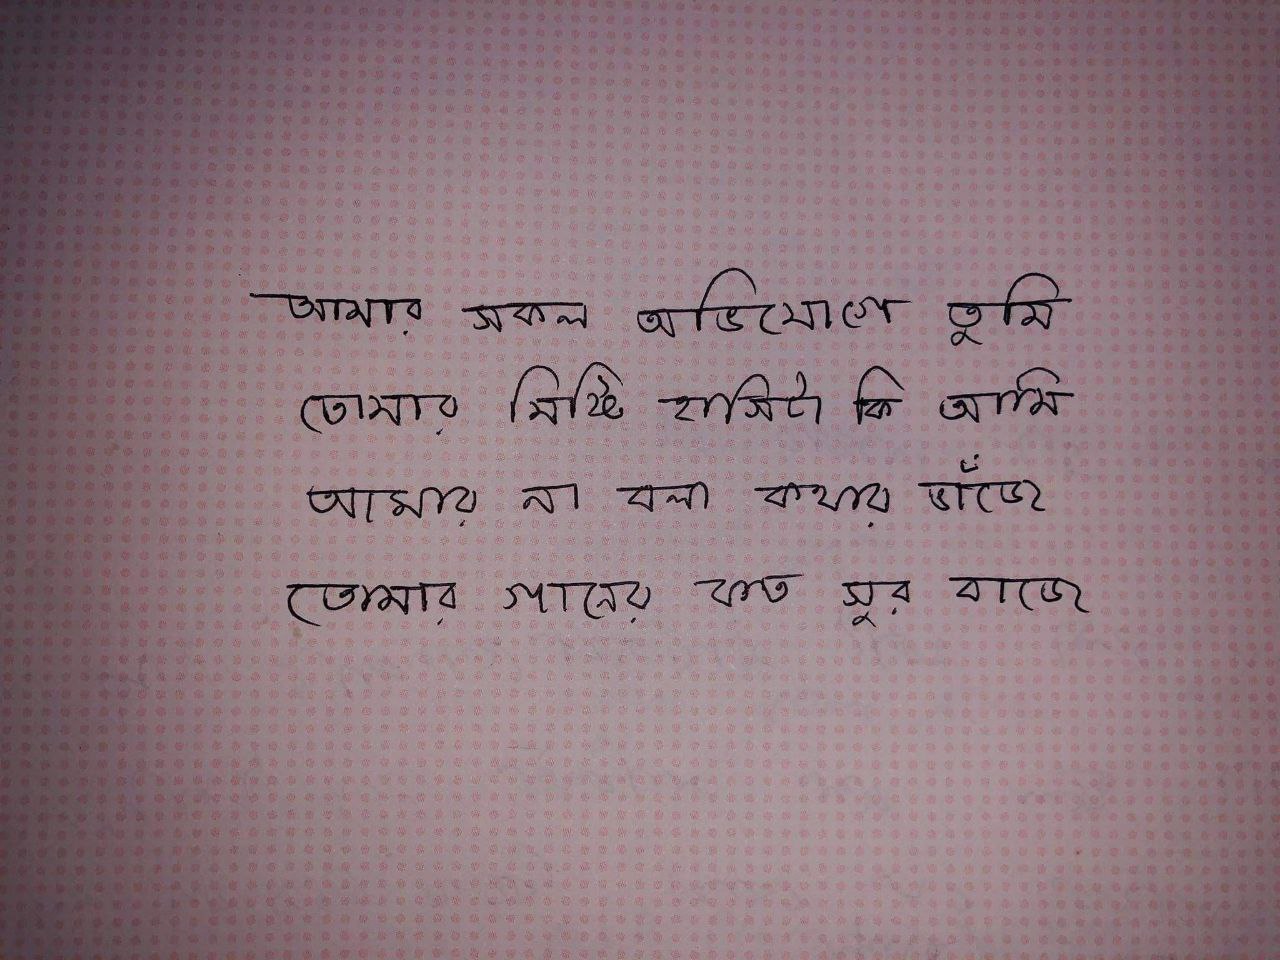 আমার সকল অভিযোগে তুমি
তোমার মিষ্টি হাসিটা কি আমি
আমার না বলা কথার ভাঁজে
তোমার গানের কত সুর বাজে